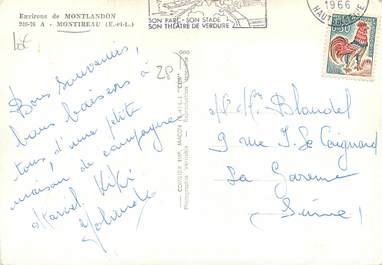 Environs de MONTLANDON
MONTIREAU (E.-et-L.)
SON PARC - SON STADE
SON THÉATRE DE VERDURE
1966
HAUTS DE SEINE
0,30
lot
2P
Bons souvenirs,
bons baisers à
tous d'une petite
maison de campagne
Marcel Kiki
Yolande
COMBIER IMP. MACON
"CIM"
Photographie Véritable
Mr Mme Blandel
9 rue J. Le Coignard
La Garenne
Seine!